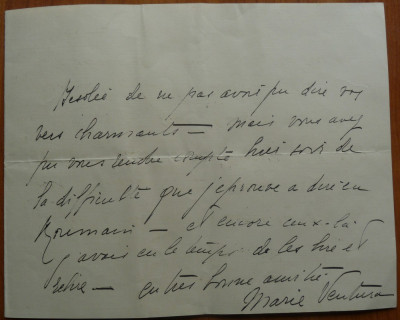 Désolée de ne pas avoir pu dire vos
vers charmants — mais vous avez
pu vous rendre compte hier soir de
la difficulté que j'éprouve a dire en
Roumain — et encore ceux-là
j'avais eu le temps de les lire et
relire — en très bonne amitié
Marie Ventura